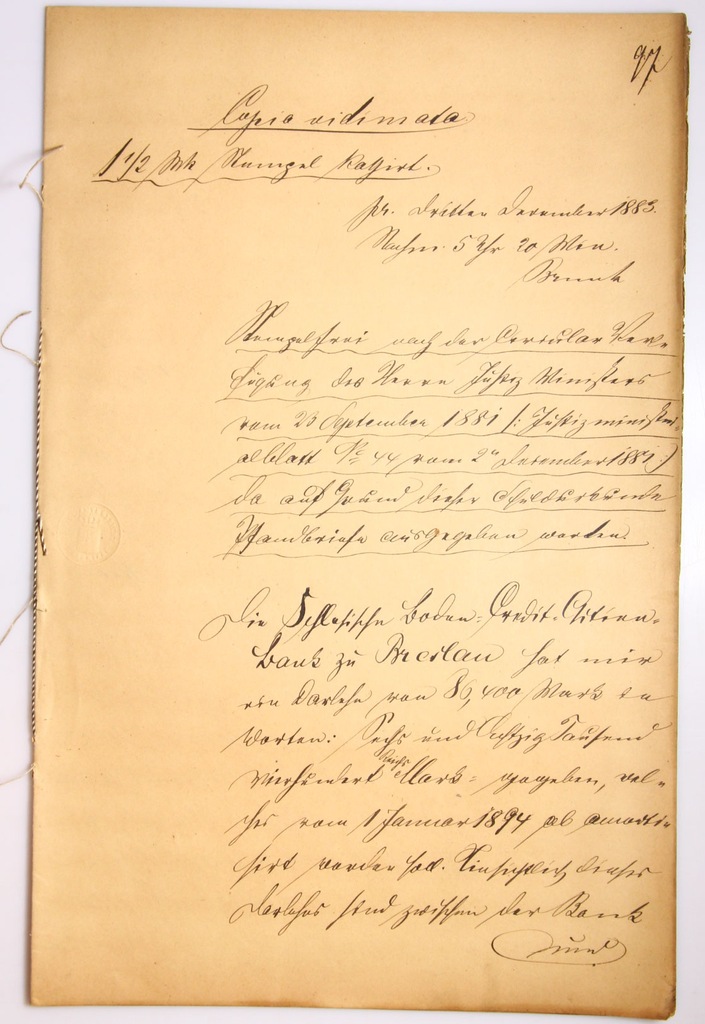 97
Copia vidimata
1 1/2 Mk Stempel kassirt.
pr. dritten Dezember 1883.
Nachm. 5 Uhr 20 Min.
Stempelfrei nach der Circular Ver-
fügung des Herrn Justiz Ministers
vom 23 September 1881 /: Justizminister-
alblatt No 44 vom 2n Dezember 1881 :/
da auf Grund dieser Schuldurkunde
Pfandbriefe ausgegeben worden.
Die Schlesische Boden-Credit-Actien-
Bank zu Breslau hat mir
ein Darlehn von 86,400 Mark in
Worten: Sechs und Achtzig Tausend
Vierhundert Reichs Mark gegeben, wel-
ches vom 1 Januar 1894 ab amorti-
sirt werden soll. Hinsichtlich dieses
Darlehns sind zwischen der Bank
und